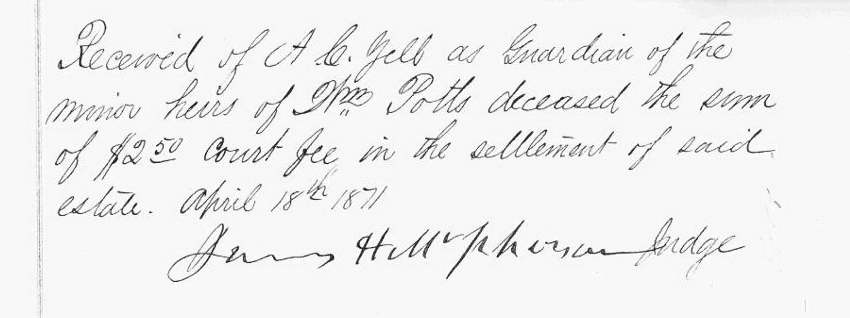 Received of A C. Yell as Guardian of the
minor heirs of Wm Potts deceased the sum
of $2 50 court fee in the settlement of said
estate. April 18th 1871
James H McPherson Judge